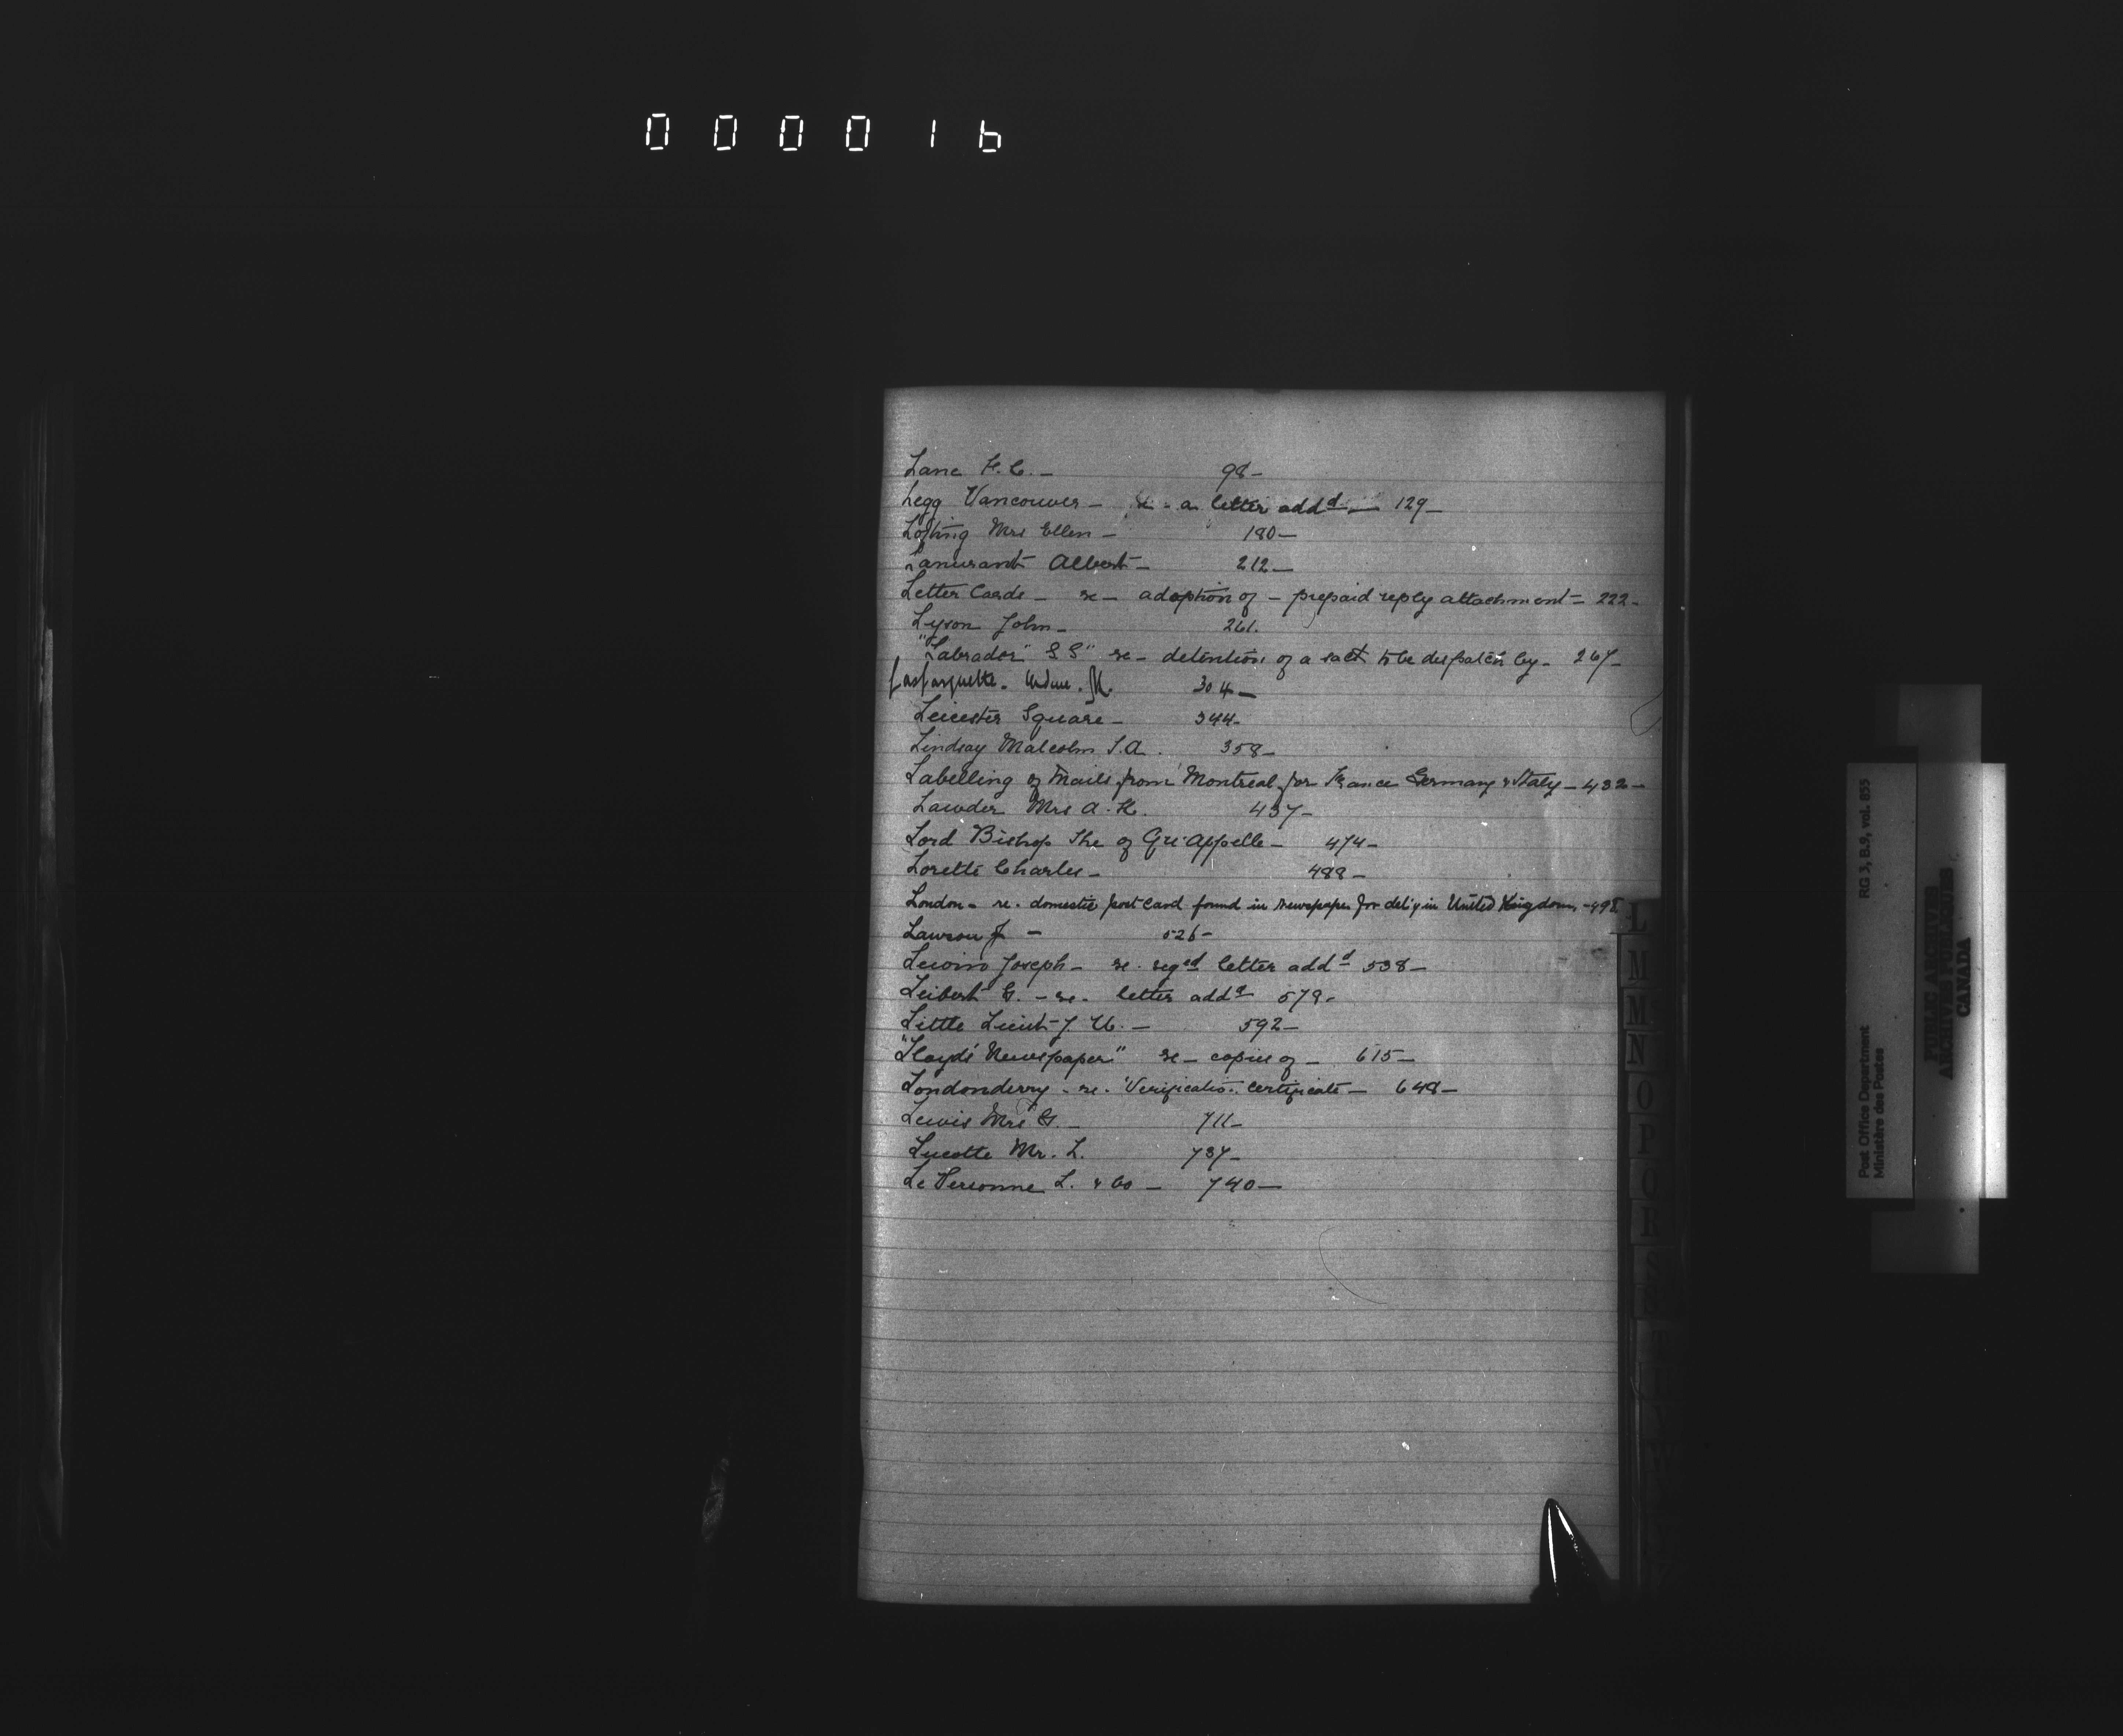 000016
Lane F. C. — 98 —
Legg Vancouver — re - a letter addd — 129 —
Mrs Ellen — 180 —
Albert — 212 —
Letter Cards — re — adoption of — prepaid reply attachment = 222 -
Lyson John — 261.
"Labrador" S S" re — detention of a sack to be dispatch by — 267 —
304 —
Leicester Square — 344 -
Lindsay Malcolm S.A. 358 —
Labelling of Mails from Montreal for France Germany & Italy — 432 —
Lawder Mrs A. K. 437 —
Lord Bishop The of Qu'Appelle — 474 —
Lorette Charles — 488 —
London - re. domestic post card found in newspaper for del'y in United Kingdom, - 498
Lawson J — 526 -
Joseph — re. reged letter addd 538 —
Leibert G. — re - letter addd 579 -
Little Lieut J. W. — 592 —
"Lloyds' Newspaper" re — copies of — 615 —
Londonderry - re. Verification certificate — 648 —
Lewis Mrs G. — 711 —
Lucotte Mr. L. 737 —
Le L. & Co — 740 —
L
M
M
N
O
P
Q
R
S
Post Office Department RG 3, B.9, vol. 855
Ministère des Postes
PUBLIC ARCHIVES
ARCHIVES PUBLIQUES
CANADA